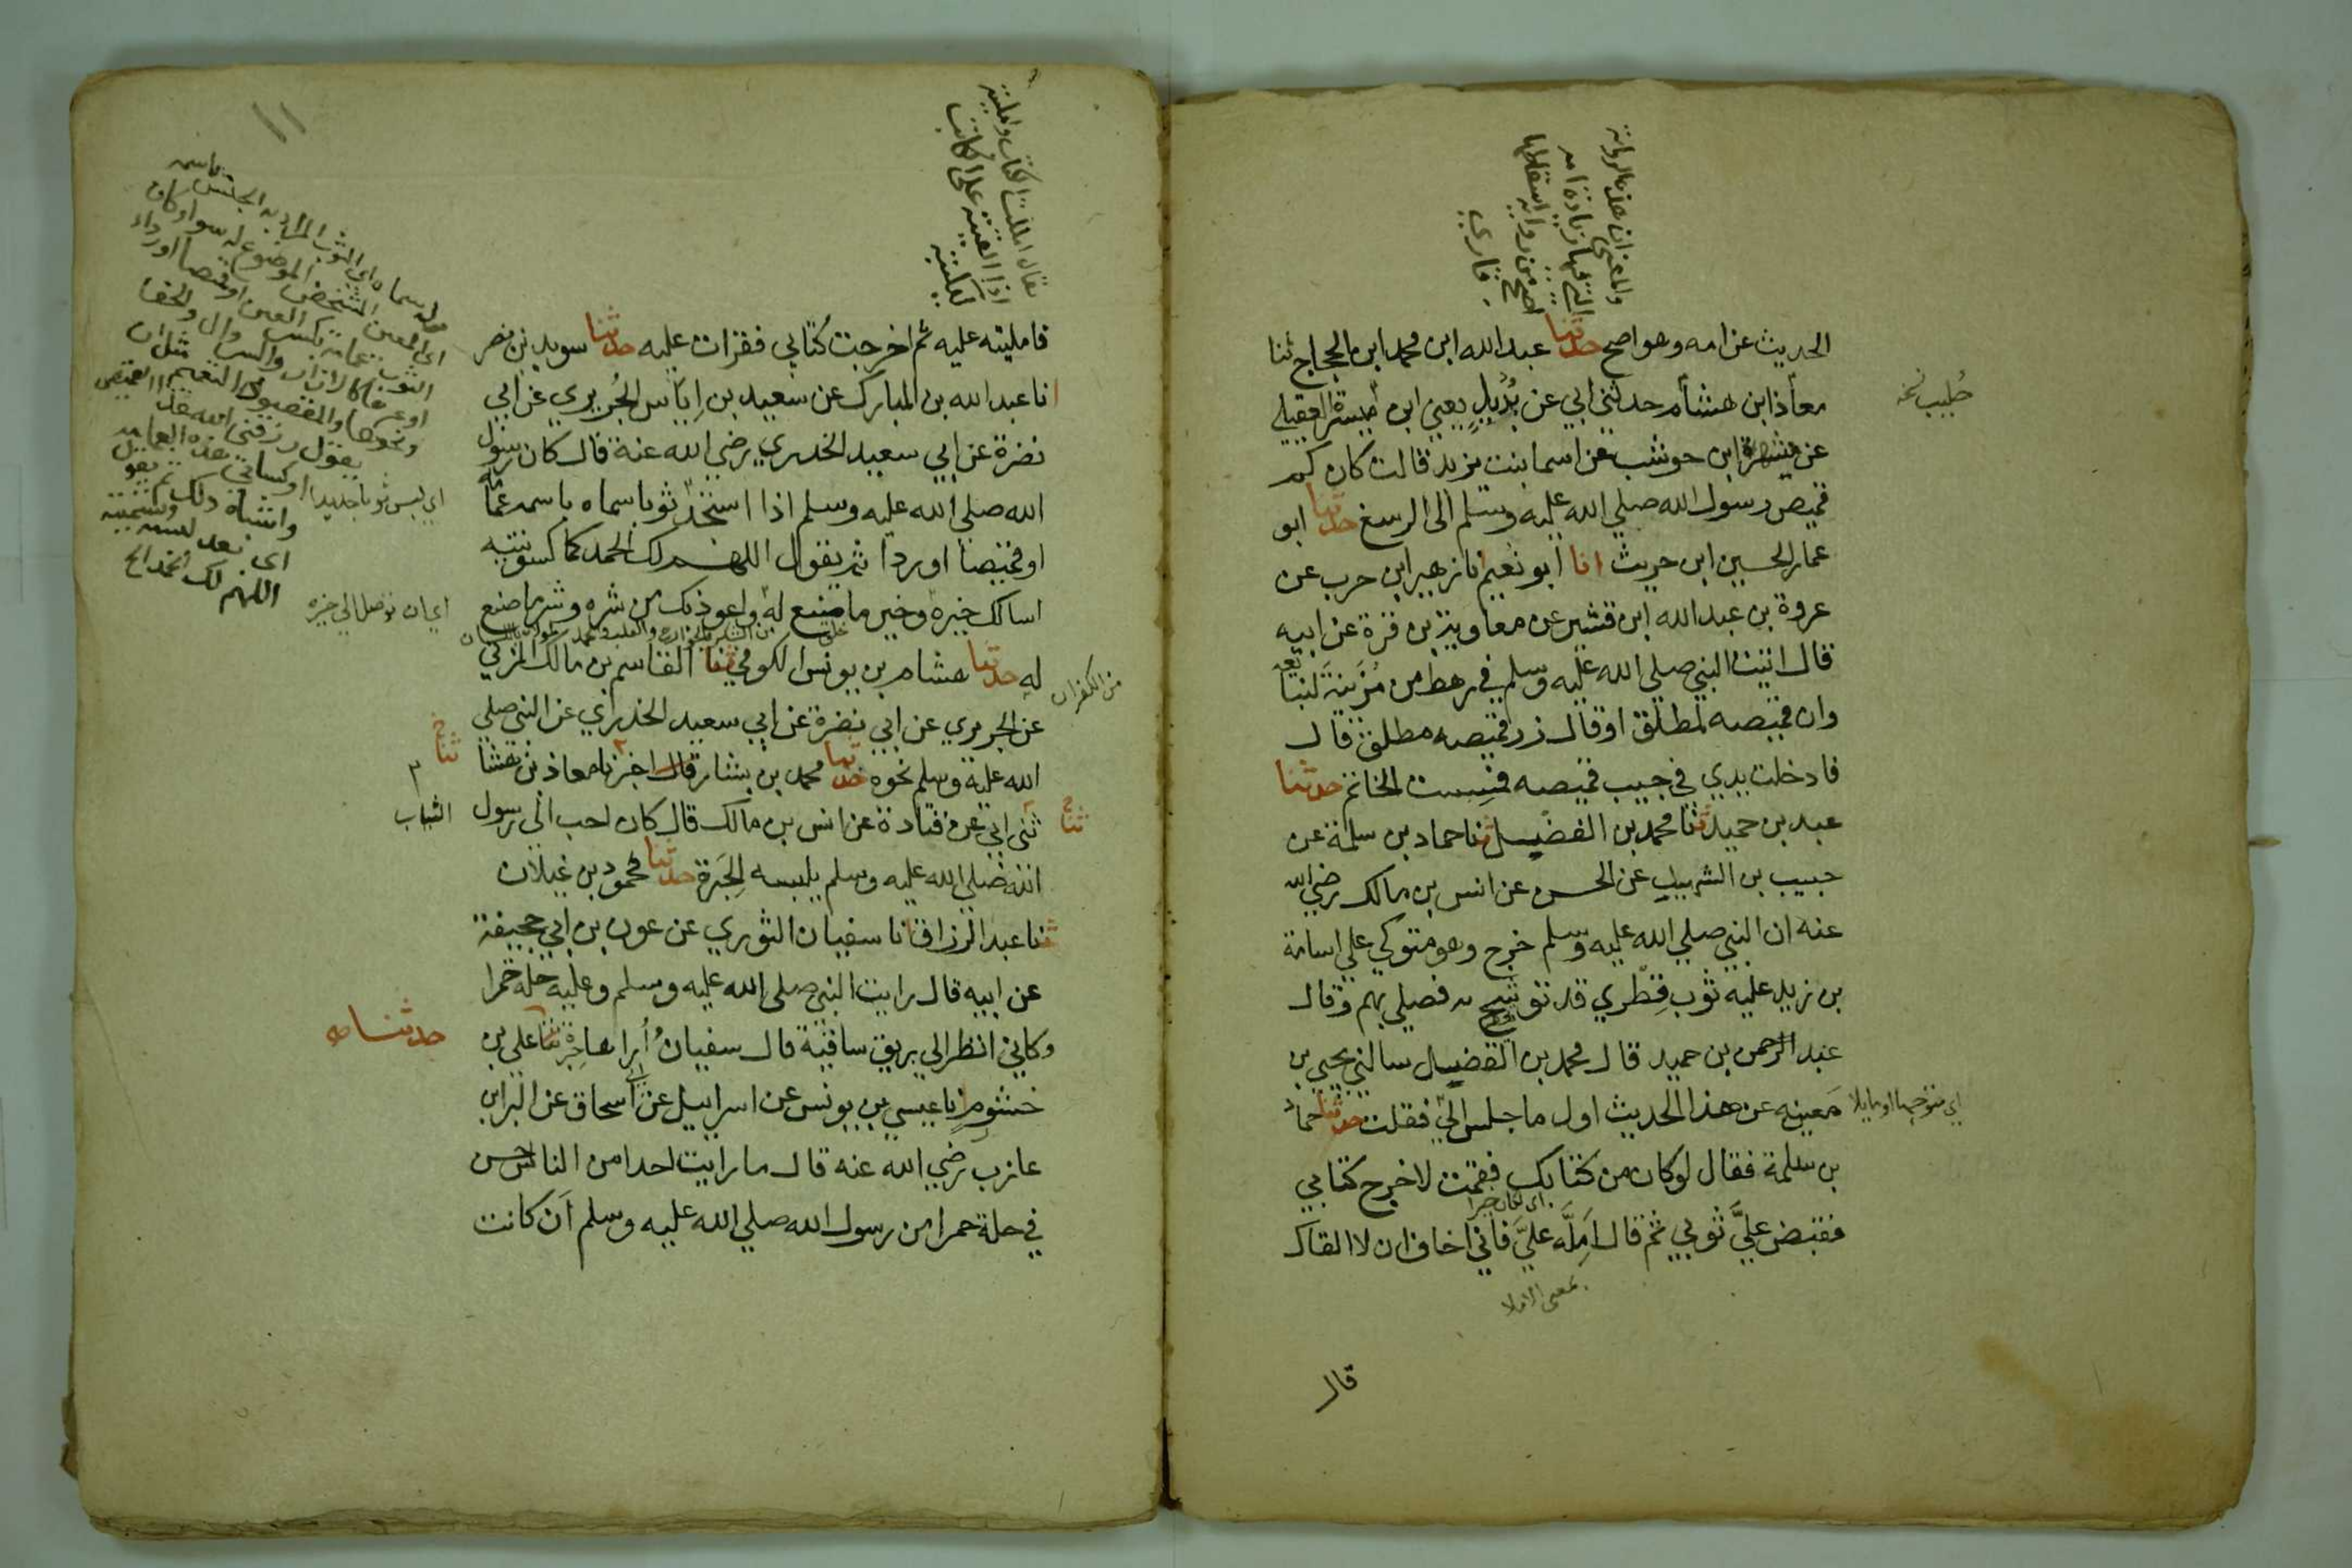 الحديث عن امه وهو اصح حدثنا عبد الله ابن محمد ابن الحجاج ثنا
معاذ ابن هشام حدثني ابي عن بُدَيلٍ يعني ابن ميسرة العقيلي
عن شهر ابن حوشب عن اسما بنت يزيد قالت كان كم
قميص رسول الله صلي الله عليه وسلم الى الرسغ حدثنا ابو
عمار الحسين ابن حريث انا ابو نعيم انا زهير ابن حرب عن
عروة بن عبد الله ابن قشير عن معاوية بن قرة عن ابيه
قال اتيت النبي صلي الله عليه وسلم في رهط من مُزَينَة لنبايعه
وان قميصه لمطلق او قال زر قميصه مطلق قال
فادخلت يدي في جيب قميصه فمسست الخاتم حدثنا
عبد بن حميد ثنا محمد بن الفضيل ثنا حماد بن سلمة عن
حبيب بن الشهيد عن الحسن عن انس بن مالك رضي الله
عنه ان النبي صلي الله عليه وسلم خرج وهو متوكي علي اسامة
بن زيد عليه ثوب قِطْري قد توشح به فصلي بهم وقال
عبد الرحمن بن حميد قال محمد بن الفضيل سالني يحيي بن
معين عن هذا الحديث اول ما جلس اليّ فقلت حدثنا حماد
بن سلمة فقال لو كان من كتابك فقمت لاخرج كتابي
اي لكان خيرا
فقبض عليَّ ثوبي ثم قال اَمِلَّه عليَّ فاني اخاف ان لا القاك
بمعنى الاملا
قال
والمعنى ان هذه الرواية
التي فيها زيادة امه
اصح من رواية اسقاطها
قاري
نسخه
فامليته عليه ثم اخرجت كُتابي فقرات عليه حدثنا سويد بن نصر
انا عبد الله بن المبارك عن سعيد بن اِيَاس الجُريري عن ابي
نضرة عن ابي سعيد الخدري رضي الله عنه قال كان رسول
الله صلي الله عليه وسلم اذا استجد ثوبا سماه باسمه عمامة
او قميصا او ردا ثم يقول اللهم لك الحمد كما كسوتنيه
اسالك خيره وخير ما صنع له واعوذ بك من شره وشر ما صنع
له حدثنا هشام بن يونس الكوفي ثنا القاسم بن مالك المزني
عن الجريري عن ابي نضرة عن ابي سعيد الخدري عن النبي صلي
الله عليه وسلم نحوه حدثنا محمد بن بشار قال اخبرنا معاذ بن هشا
ثني ابي عن قتادة عن انس بن مالك قال كان احب الي رسول
الله صلي الله عليه وسلم يلبسه الحِبَرة حدثنا محمود بن غيلان
ثنا عبد الرزاق انا سفيان الثوري عن عون بن ابي جحيفة
عن ابيه قال رايت النبي صلى الله عليه وسلم وعليه حلة حمرا
وكاني انظر الي بريق ساقيه قال سفيان اُراها حِبَرة ثنا علي بن
خشرم انا عيسي بن يونس عن اسرايل عن ابي اسحاق عن البرا بن
عازب رضي الله عنه قال ما رايت احدا من الناس احسن
في حلة حمرا من رسول الله صلي الله عليه وسلم اَن كانت
يقال امللت الكتاب وامليته
اذا القيته على الكاتب
ليكتبه
اي لبس ثوبا جديدا
اي ان توصل الي خيره
الثياب
حدثنا
اللهم لك الحمد الخ